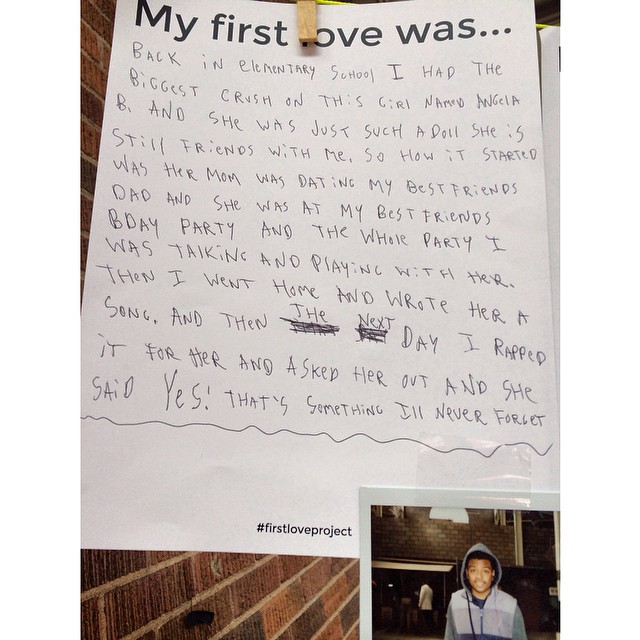 My first love was...
BACK iN elemENTARY SCHOOL I HAD THE
BiGGEST CRUSH ON THiS GiRL NAMED ANGELA
B. AND SHE WAS JUST SUCH A DOll SHE iS
STill FRiENDS WiTH ME. SO HOW iT STARTED
WAS HER MOM WAS DATiNG MY BEST FRiENDS
DAD AND SHE WAS AT MY BEST FRiENDS
BDAY PARTY AND THE WHOLE PARTY I
WAS TAlKiNG AND PlAYiNG WiTH HER.
THEN I WENT HOME AND WROTE HER A
SONG. AND THEN THE NEXT DAY I RAPPED
iT FOR HER AND ASKED HER OUT AND SHE
SAiD YES! THAT'S SOMETHiNG I'll NEVER FORGET
#firstloveproject